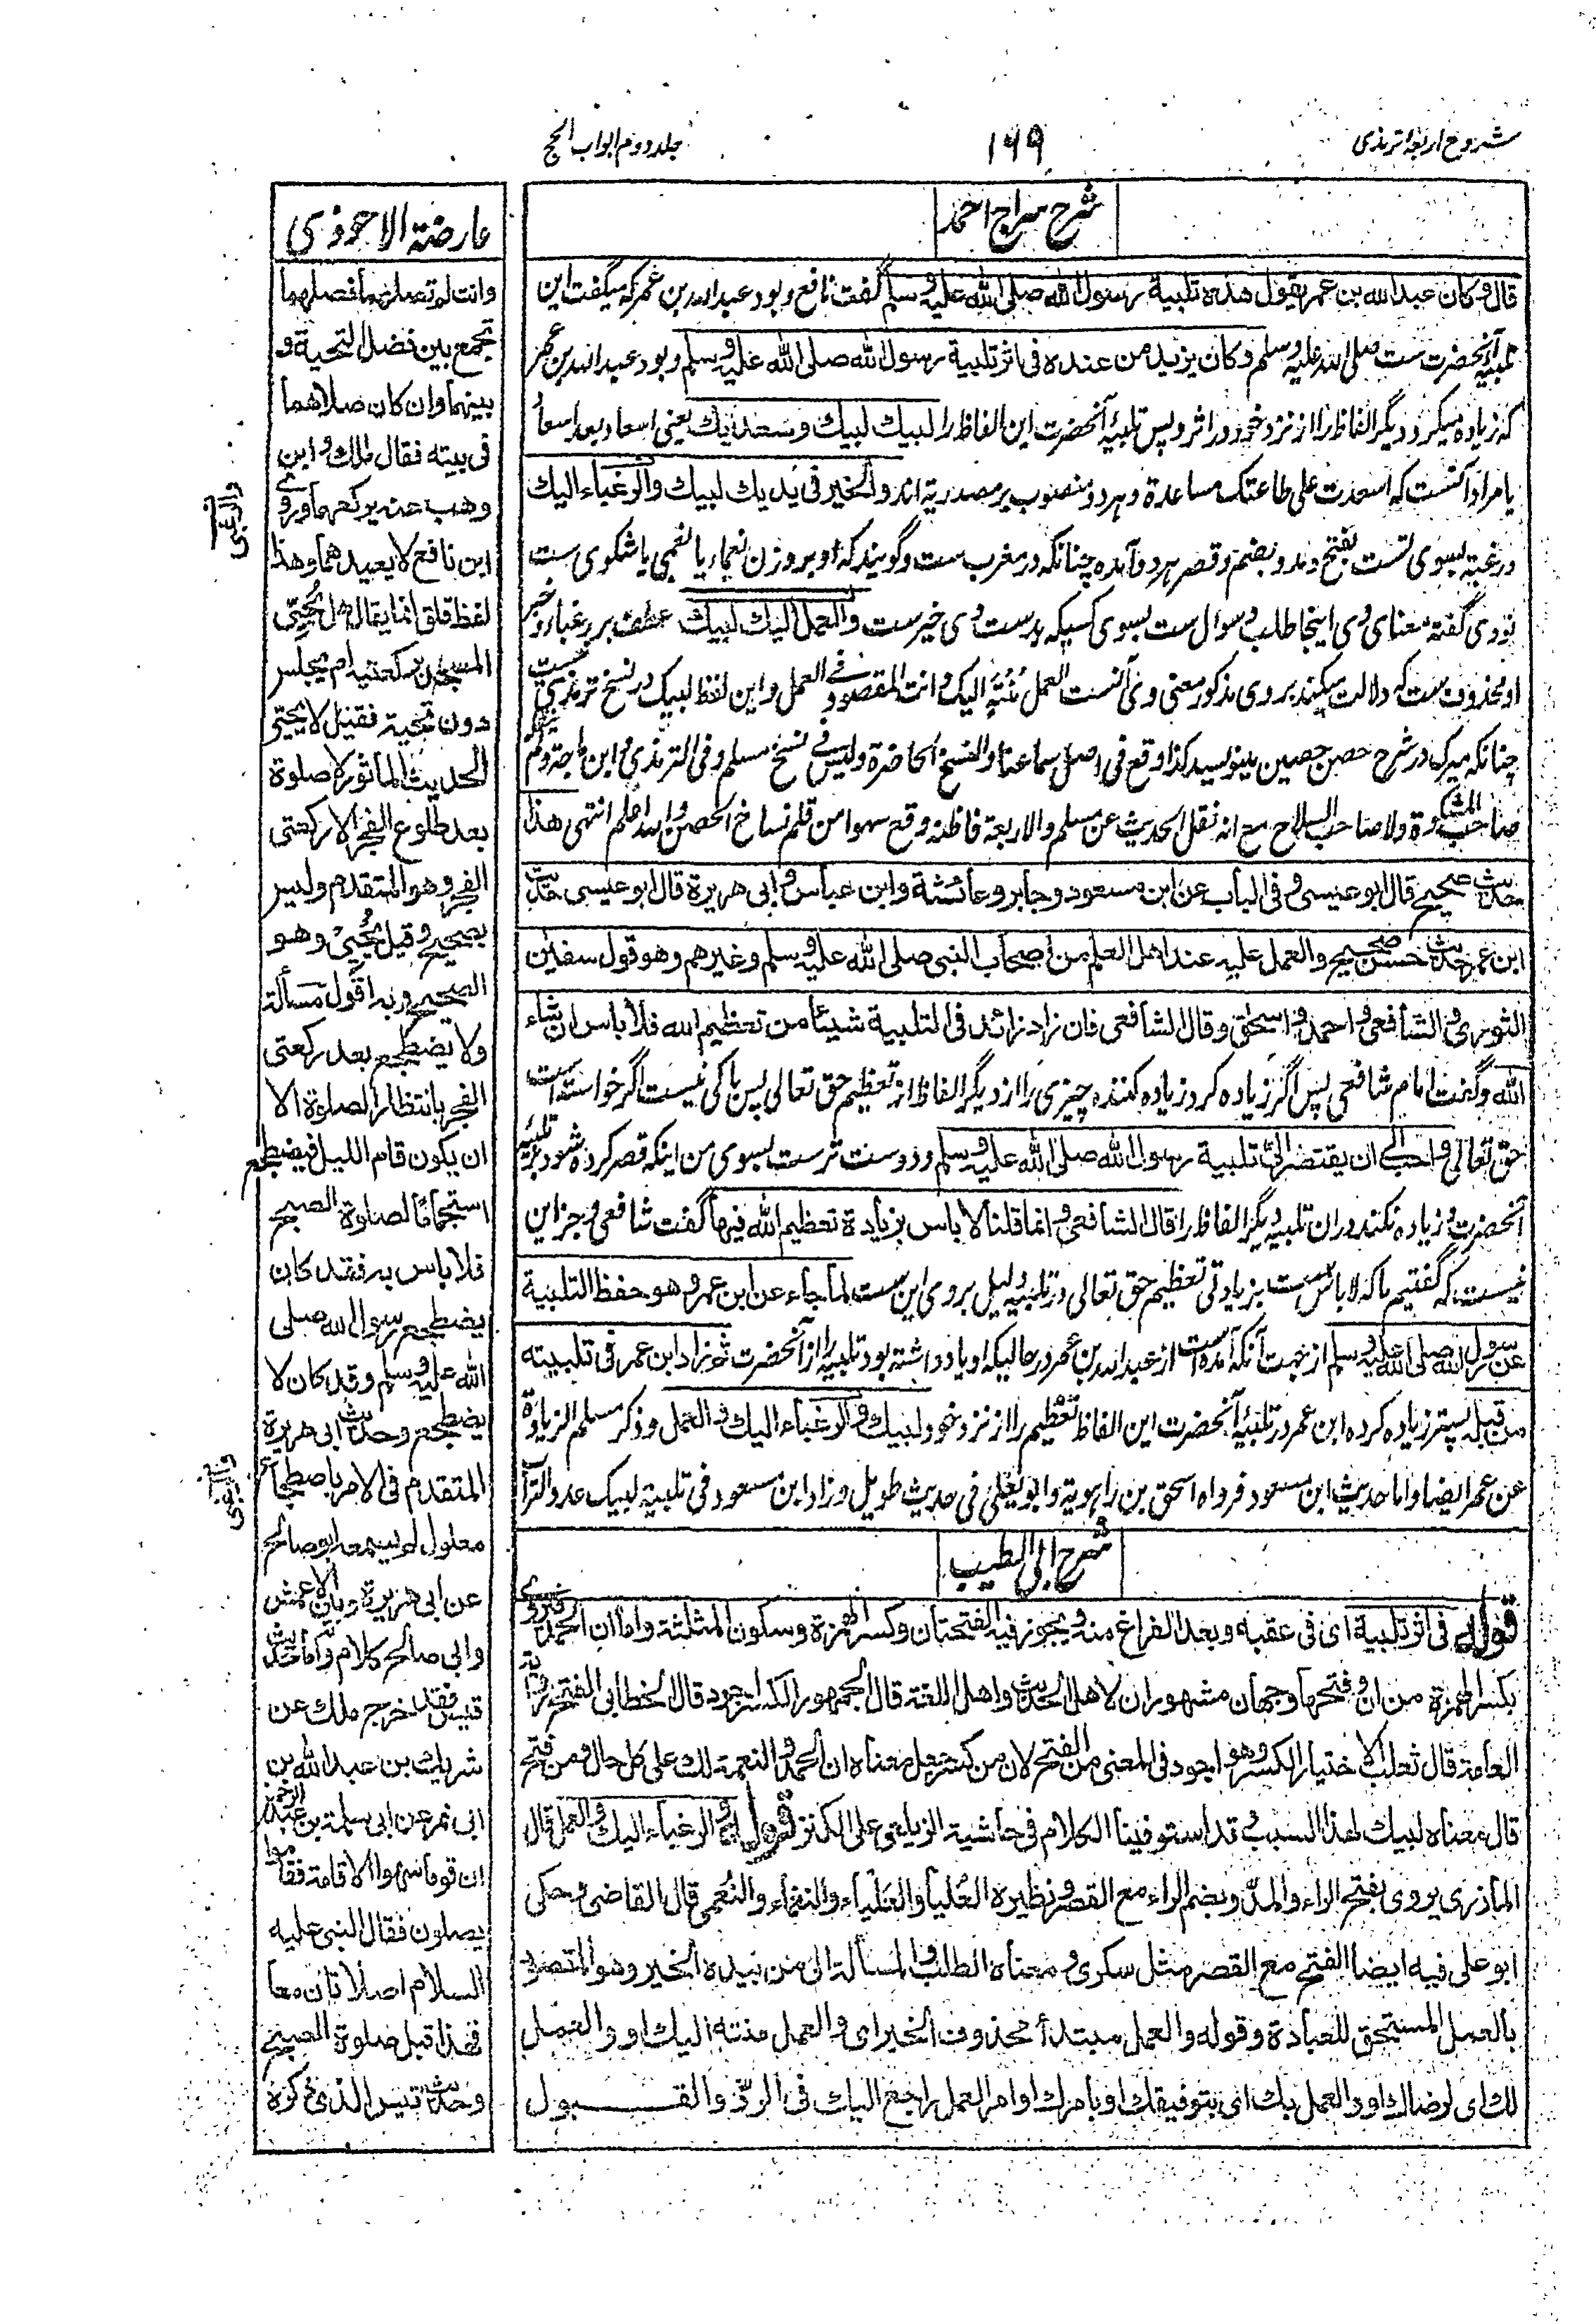 شروح اربعۂ ترمذی
۱۹۹
جلد دوم ابواب الحج
شرح سراج احمد
قال وكان عبد الله بن عمر يقول هذه تلبية رسول الله صلى الله عليه وسلم گفت نافع و بود عبد الله بن عمر كه میگفت این
تلبیۂ آنحضرت ست صلى الله عليه وسلم وكان يزيد من عنده فى اثر تلبية رسول الله صلى الله عليه وسلم وبود عبد الله بن عمر
که زیاده میکرد دیگر الفاظ را از نزد خود در اثر و پس تلبیۂ آنحضرت این الفاظ را لبيك لبيك وسعديك یعنی اسعاد بعد اسعاد
یا مراد آنست که اسعدت علی طاعتک مساعدة و هر دو منصوب بر مصدریة اند والخير فى يديك لبيك والرغباء اليك
ورغبة بسوی تست بفتح و مد و بضم و قصر هر دو آمده چنانکه در مغرب ست و گویند که او بر وزن نعماء یا نعمی یا شکوی ست
نووی گفته معنای وی اینجا طلب و سوال ست بسوی کسیکه بدست وی خیر ست والعمل اليك لبيك عطف بر رغباء و خبر
او محذوف ست که دلالت میکند بر وی مذکور معنی وی آنست العمل مُنتَهٍ الیک وانت المقصود فی العمل و این لفظ لبیک در نسخ ترمذی نیست
چنانکه میرک در شرح حصن حصین مینویسد کذا وقع فی اصل سماعنا والنسخ الحاضرة ولیس فی نسخ مسلم وفی الترمذی و ابن ماجة ولم یذکره
صاحب المشكوة ولا صاحب السلاح مع انه نقل الحديث عن مسلم والاربعة فاظنه وقع سهوا من قلم نساخ الحصن والله اعلم انتهى هذا
حديث صحيح قال ابو عيسى وفى الباب عن ابن مسعود وجابر وعائشة وابن عباس وابى هريرة قال ابو عيسى حديث
ابن عمر حديث حسن صحيح والعمل عليه عند اهل العلم من اصحاب النبى صلى الله عليه وسلم وغيرهم وهو قول سفين
الثورى والشافعى واحمد واسحق وقال الشافعى فان زاد زائد فى التلبية شيئا من تعظيم الله فلا باس ان شاء
الله و گفت امام شافعی پس اگر زیاده کرد زیاده کننده چیزی را از دیگر الفاظ از تعظیم حق تعالی پس باکی نیست اگر خواسته است
حق تعالی واحب الى ان يقتصر على تلبية رسول الله صلى الله عليه وسلم و دوست ترست بسوی من اینکه قصر کرده شود بر تلبیۂ
آنحضرت و زیاده نکند در ان تلبیه دیگر الفاظ را قال الشافعى وانما قلنا لا باس بزيادة تعظيم الله فيها گفت شافعی و جز این
نیست که گفتیم ما که لا باس ست بزیادتی تعظیم حق تعالی در تلبیه دلیل بر وی این ست لما جاء عن ابن عمر وهو حفظ التلبية
عن رسول الله صلى الله عليه وسلم از جهت آنکه آمده است از عبد الله بن عمر در حالیکه او یاد داشته بود تلبیه را از آنحضرت ثم زاد ابن عمر فى تلبيته
من قبله پستر زیاده کرده ابن عمر در تلبیۂ آنحضرت این الفاظ تعظیم را از نزد خود لبيك والرغباء اليك والعمل وذکر مسلم الزیادة
عن عمر ایضا واما حدیث ابن مسعود فرواه اسحق بن راهویه وابو یعلی فی حدیث طویل وزاد ابن مسعود فی تلبیته لبیک عدد التراب
شرح ابی الطیب
قوله فى اثر تلبية اى فى عقبه وبعد الفراغ منه ويجوز فيه الفتحتان وكسر الهمزة وسكون المثلثة واما ان الحمد فيروى
بكسر الهمزة من ان وفتحها وجهان مشهوران لاهل الحديث واهل اللغة قال الجمهور الكسر اجود قال الخطابى الفتح رواية
العامة قال ثعلب الاختيار الكسر وهو اجود فى المعنى من الفتح لان من كسر جعل معناه ان الحمد والنعمة لك على كل حال ومن فتح
قال معناه لبيك لهذا السبب وقد استوفينا الكلام فى حاشية الزيلعى على الكنز قوله والرغباء اليك والعمل قال
المازرى يروى بفتح الراء والمد وبضم الراء مع القصر ونظيره العُليا والعَلياء والنعماء والنُعمى قال القاضى وحكى
ابو على فيه ايضا الفتح مع القصر مثل سكرى ومعناه الطلب والمسألة الى من بيده الخير وهو المقصود
بالعمل المستحق للعبادة وقوله والعمل مبتدأ محذوف الخبر اى والعمل منته اليك او والعمل
لك اى لوضاك او والعمل بك اى بتوفيقك او بامرك او امر العمل راجع اليك فى الرد والقبول
عارضة الاحوذى
وانت لم تصلهما فصلهما
تجمع بين فضل التحية و
بينهما وان كان صلاهما
فى بيته فقال ملك وابن
وهب عنه يركعهما وروى
ابن نافع لا يعيدهما وهذا
لفظ قلق انما يقال هل يُحيّى
المسجد بركعتيه ام يجلس
دون تحية فقيل لا يحيى
الحديث المأثور لا صلوة
بعد طلوع الفجر الا ركعتى
الفجر وهو المتقدم وليس
بصحيح وقيل يُحيىّ وهو
الصحيح وبه اقول مسألة
ولا يضطجع بعد ركعتى
الفجر بانتظار الصلوة الا
ان يكون قام الليل فيضطجع
استجماما لصلوة الصبح
فلا باس به فقد كان
يضطجع رسول الله صلى
الله عليه وسلم وقد كان لا
يضطجع وحديث ابى هريرة
المتقدم فى الامر باضطجاع
معلول لم يسمعه ابو صالح
عن ابى هريرة وبين الاعمش
وابى صالح كلام واما حديث
قيس فقد خرج ملك عن
شريك بن عبد الله بن
ابى نمر عن ابى سلمة بن عبد الرحمن
ان قوما سمعوا الاقامة فقاموا
يصلون فقال النبى عليه
السلام اصلاتان معا
فهذا قبل صلوة الصبح
وحديث قيس الذى ذكره